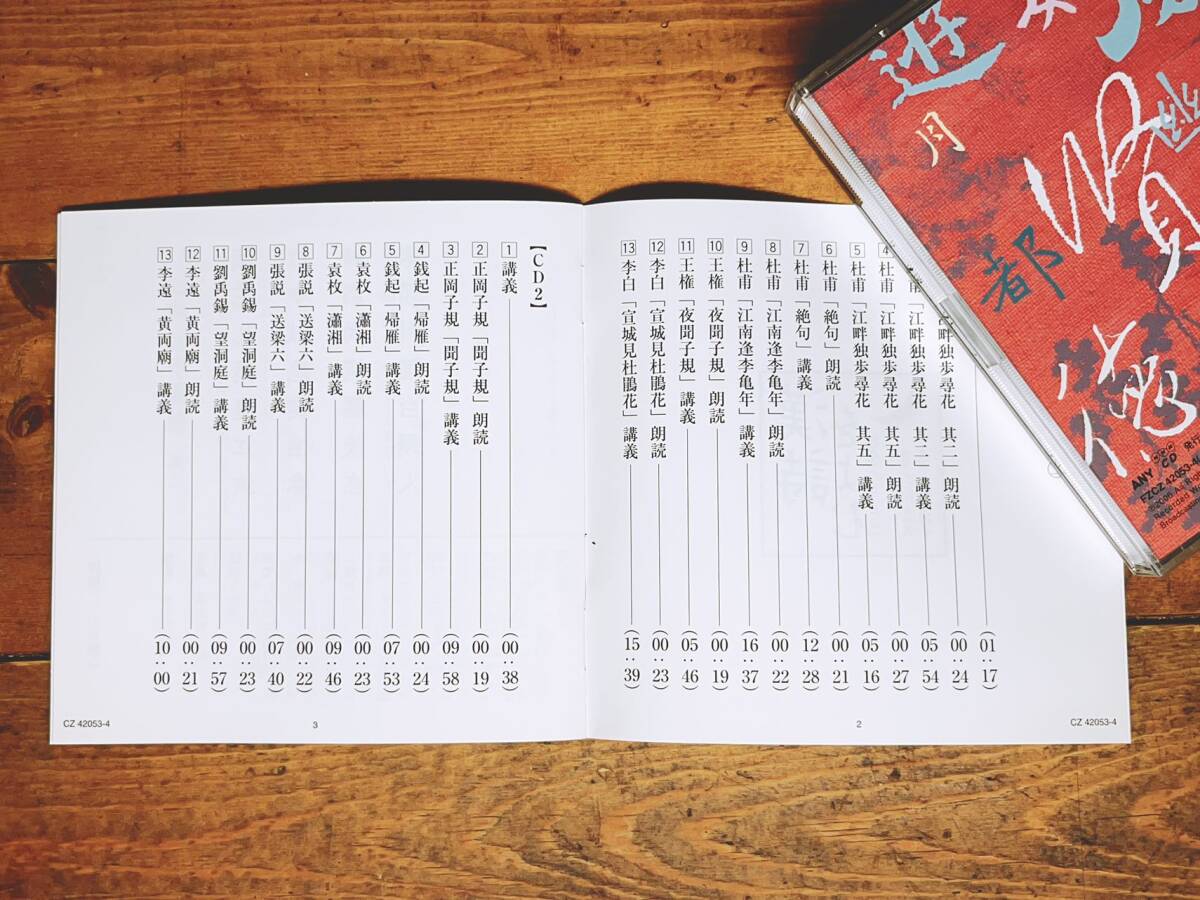 畔独歩尋花 其二」朗読 (00:24)
(01:17)
「江畔独歩尋花 其二」講義 (05:54)
4 杜甫「江畔独歩尋花 其五」朗読 (00:27)
5 杜甫「江畔独歩尋花 其五」講義 (05:16)
6 杜甫「絶句」朗読 (00:21)
7 杜甫「絶句」講義 (12:28)
8 杜甫「江南逢李亀年」朗読 (00:22)
9 杜甫「江南逢李亀年」講義 (16:37)
10 王権「夜聞子規」朗読 (00:19)
11 王権「夜聞子規」講義 (05:46)
12 李白「宣城見杜鵑花」朗読 (00:23)
13 李白「宣城見杜鵑花」講義 (15:39)
2
CZ 42053-4
【CD2】
1 講義 (00:38)
2 正岡子規「聞子規」朗読 (00:19)
3 正岡子規「聞子規」講義 (09:58)
4 銭起「帰雁」朗読 (00:24)
5 銭起「帰雁」講義 (07:53)
6 袁枚「瀟湘」朗読 (00:23)
7 袁枚「瀟湘」講義 (09:46)
8 張説「送梁六」朗読 (00:22)
9 張説「送梁六」講義 (07:40)
10 劉禹錫「望洞庭」朗読 (00:23)
11 劉禹錫「望洞庭」講義 (09:57)
12 李遠「黄両廟」朗読 (00:21)
13 李遠「黄両廟」講義 (10:00)
3
CZ 42053-4
遊
月
都
ANY CD
FZCZ 42053-4